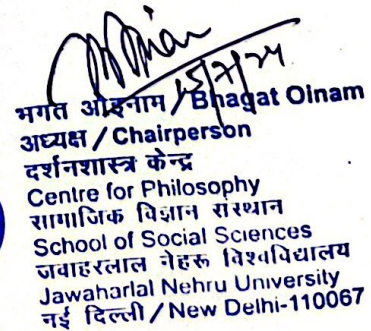 15/7/24
भगत ओइनाम / Bhagat Oinam
अध्यक्ष / Chairperson
दर्शनशास्त्र केन्द्र
Centre for Philosophy
सामाजिक विज्ञान संस्थान
School of Social Sciences
जवाहरलाल नेहरू विश्वविद्यालय
Jawaharlal Nehru University
नई दिल्ली / New Delhi-110067